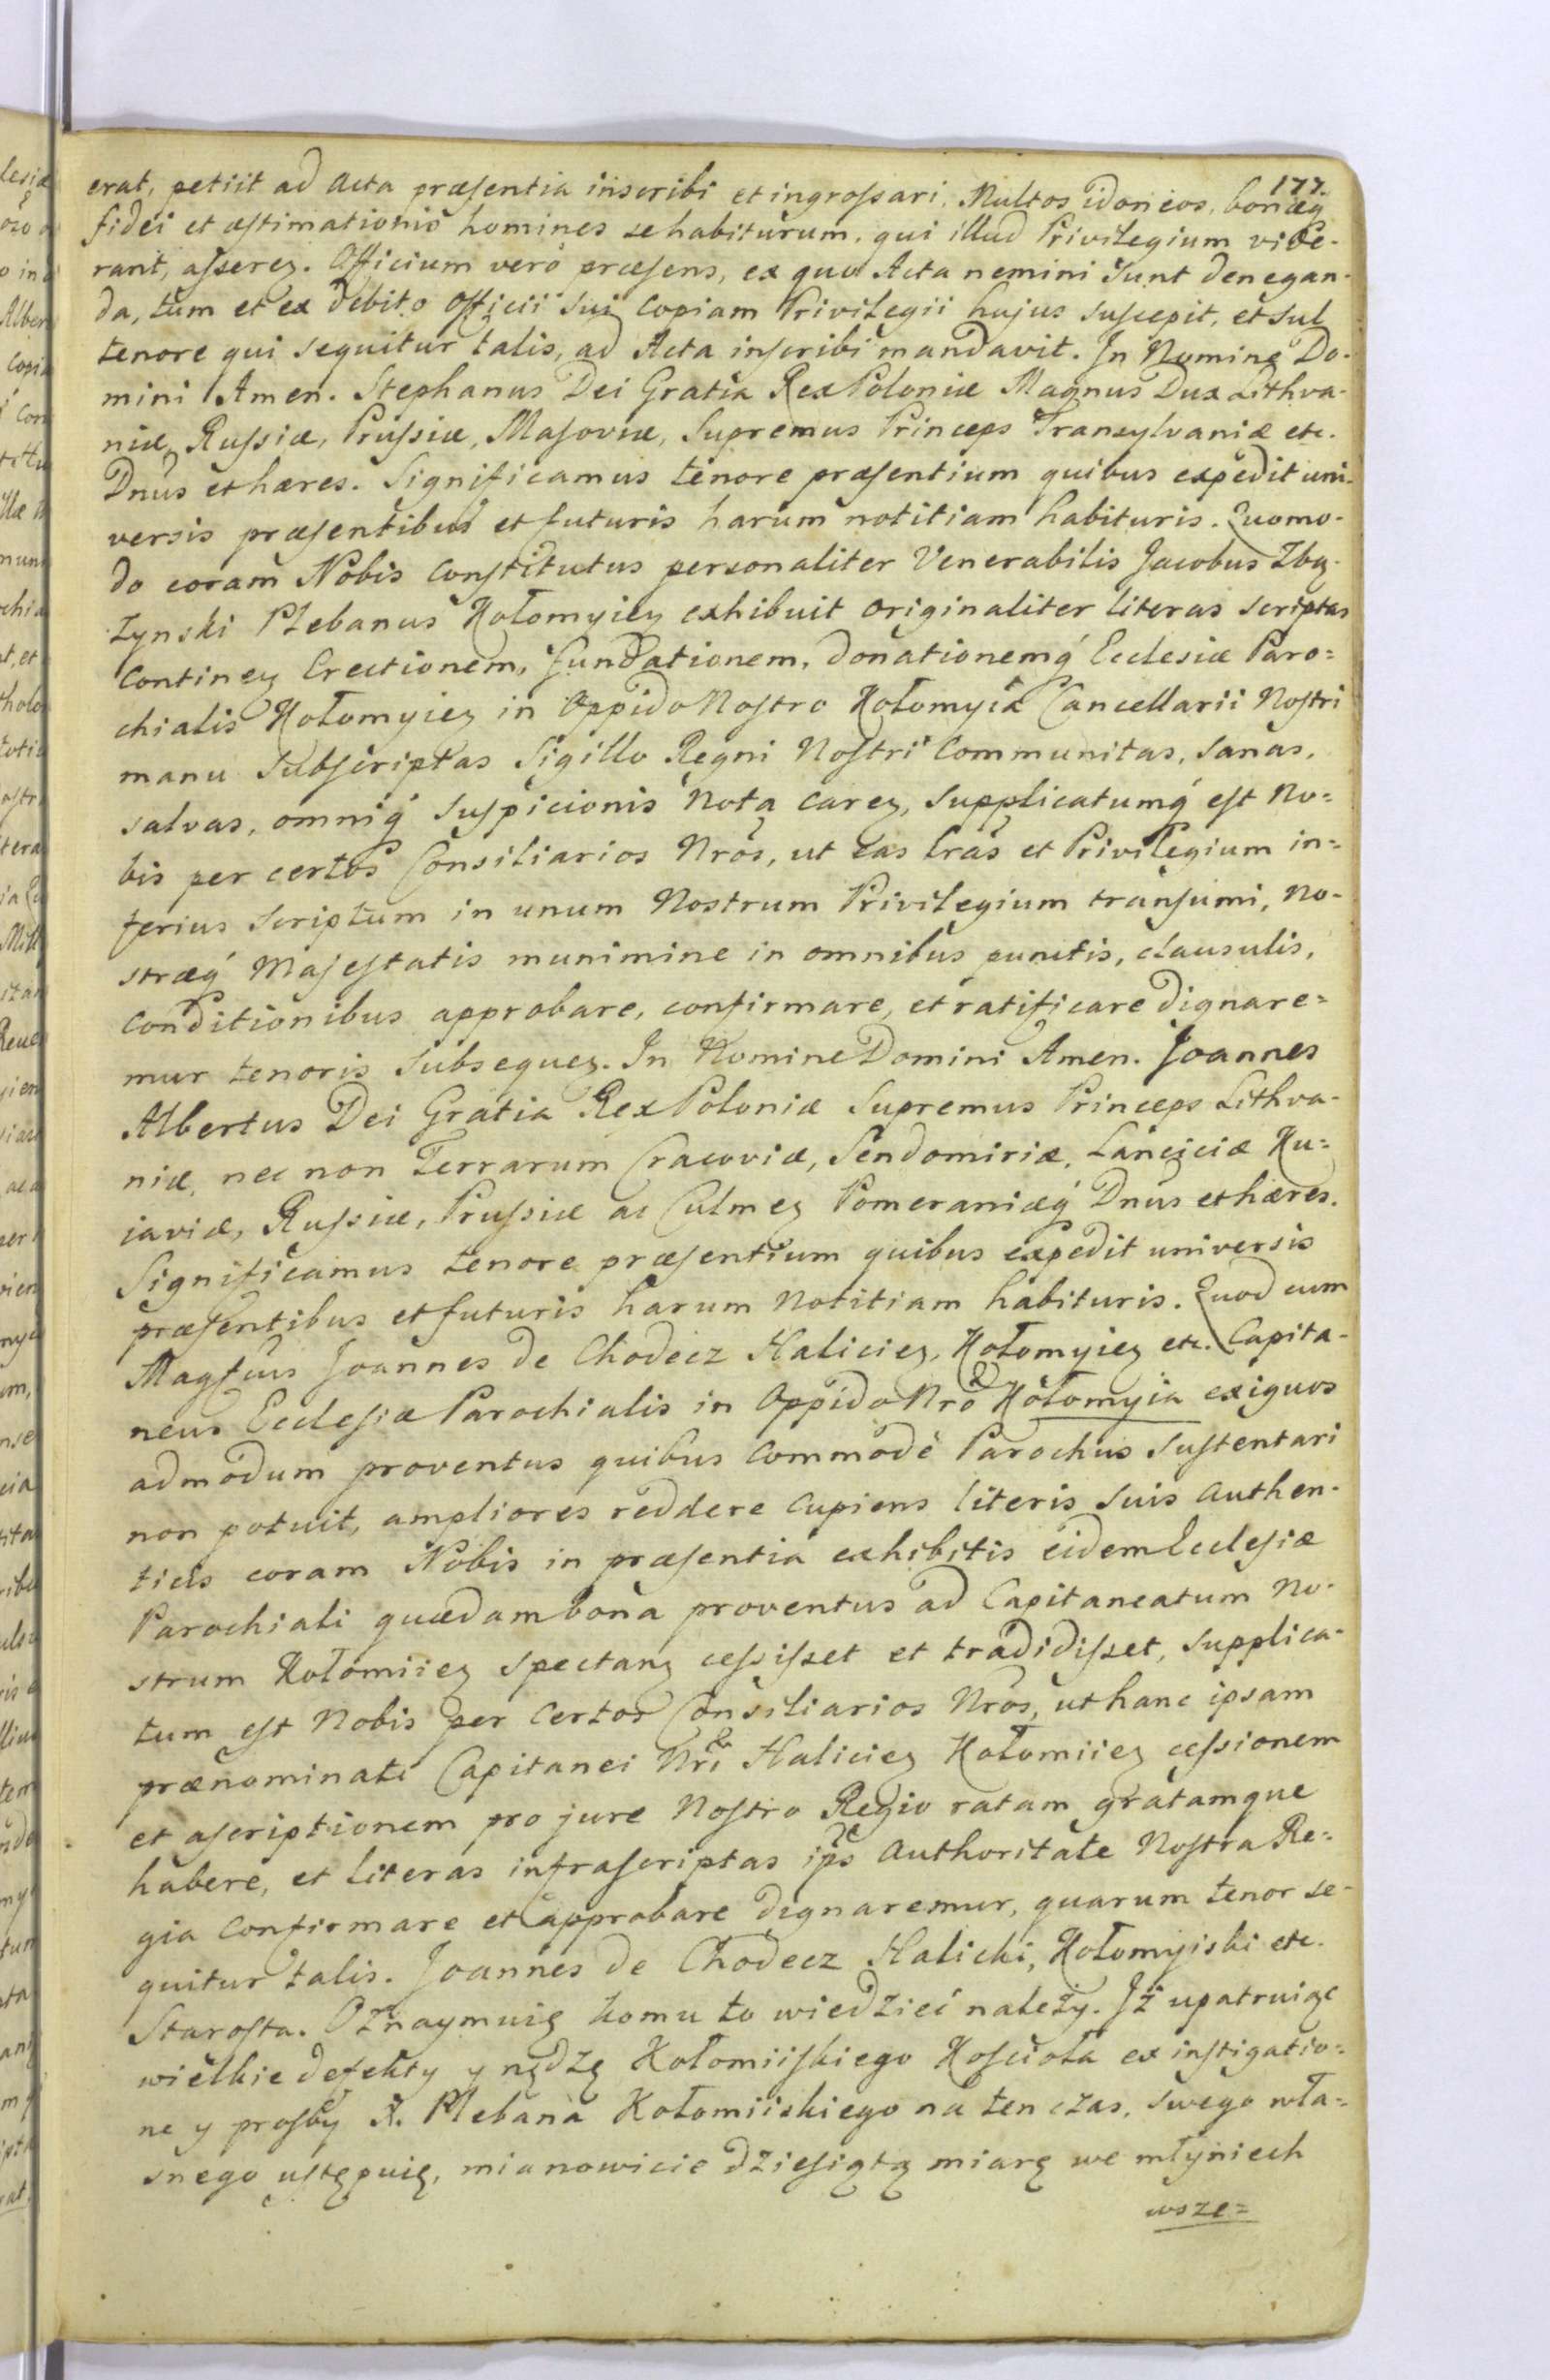 177.
erat, petiit ad Acta præsentia inscribi et ingrossari. Multos idoneos, bonæq́
fidei et æstimationis homines se habiturum, qui illud Privilegium vide-
rant, asserez. Officium verò præsens, ex quo Acta nemini sunt denegan-
da, tum et ex debito officii sui copiam Privilegii hujus suscepit, et sub
tenore qui sequitur talis, ad Acta inscribi mandavit. In Nomine Do-
mini Amen. Stephanus Dei Gratia Rex Poloniæ Magnus Dux Lithva-
niæ, Russiæ, Prussiæ, Masoviæ, Supremus Princeps Transylvaniæ etc.
Dnus et hæres. Significamus tenore præsentium quibus expedit uni-
versis præsentibus et futuris harum notitiam habituris. Quomo-
do coram Nobis constitutus personaliter Venerabilis Jacobus Zbą-
zynski Plebanus Kołomyiez exhibuit originaliter literas scriptas
continez Erectionem, fundationem, donationemq́ Ecclesiæ Paro=
chialis Kołomyiez in Oppido Nostro Kołomyia Cancellarii Nostri
manu subscriptas Sigillo Regni Nostri communitas, sanas,
salvas, omniq́ suspicionis nota carez, supplicatumq́ est No=
bis per certos Consiliarios Nros, ut eas lras et Privilegium in=
ferius scriptum in unum Nostrum Privilegium transumi, no-
stræq́ Majestatis munimine in omnibus punctis, clausulis,
conditionibus approbare, confirmare, et ratificare dignare=
mur tenoris subsequez. In Nomine Domini Amen. Joannes
Albertus Dei Gratia Rex Poloniæ Supremus Princeps Lithva-
niæ, nec non Terrarum Cracoviæ, Sendomiriæ, Lanciciæ Ku=
javiæ, Russiæ, Prussiæ ac Culmez Pomeraniæq́ Dnus et hæres.
Significamus tenore præsentium quibus expedit universis
præsentibus et futuris harum notitiam habituris. Quod cum
Magfcus Joannes de Chodecz Haliciez, Kołomyiez etc. Capita-
neus Ecclesiæ Parochialis in Oppido Nro Kołomyia exiguos
admodum proventus quibus commodè Parochus sustentari
non potuit, ampliores reddere cupiens literis suis authen-
ticis coram Nobis in præsentia exhibitis eidem Ecclesiæ
Parochiali quædam bona proventus ad Capitaneatum No-
strum Kołomiiez spectanz cessisset et tradidisset, supplica-
tum est Nobis per certos Consiliarios Nros, ut hanc ipsam
prænominati Capitanei Nri Haliciez Kołomiiez cessionem
et ascriptionem pro jure Nostro Regio ratam gratamque
habere, et literas infrascriptas ips authoritate Nostra Re=
gia confirmare et approbare dignaremur, quarum tenor se-
quitur talis. Joannes de Chodecz Halicki, Kołomyiski etc.
Starosta. Oznaymuię komu to wiedzieć należy. Iż upatruiąc
wielkie defekty y nędzę Kołomiiskiego Kościoła ex instigatio=
ne y prośby X. Plebana Kołomiiskiego na ten czas, swego wła=
snego ustępuię, mianowicie dziesiątą miarę we młyniech
wsze=